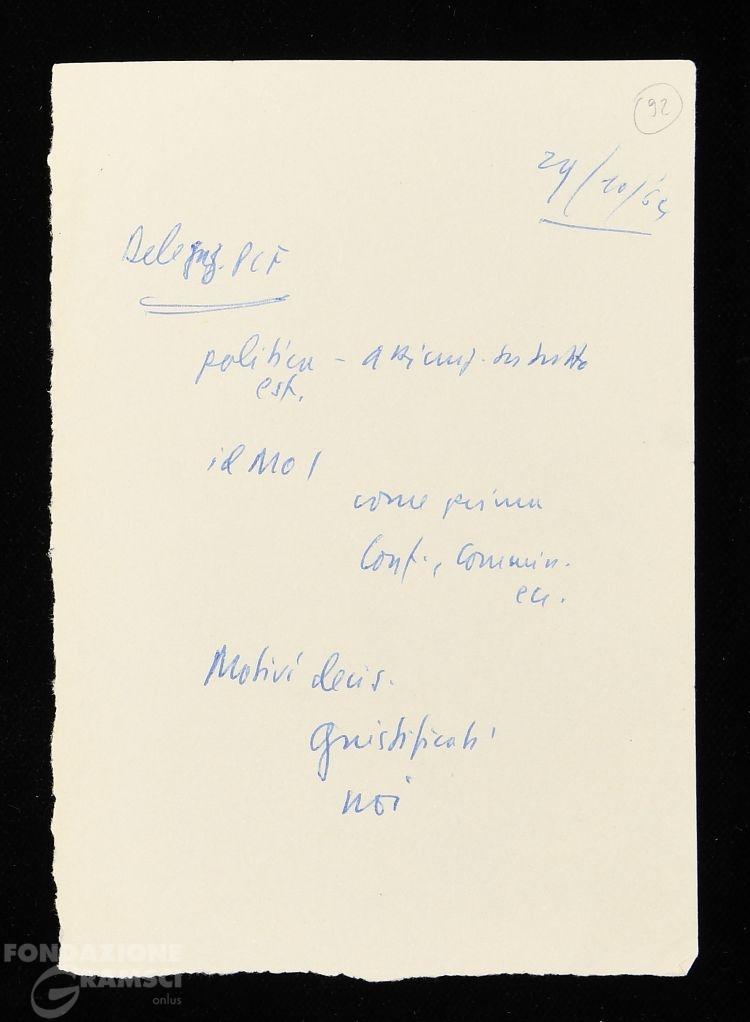 92
29/10/64
Delegaz. PCF
politica -
est.
id MOI
come prima
Conf., Commun.
ecc.
Motivi decis.
giustificati
noi
FONDAZIONE
GRAMSCI
onlus